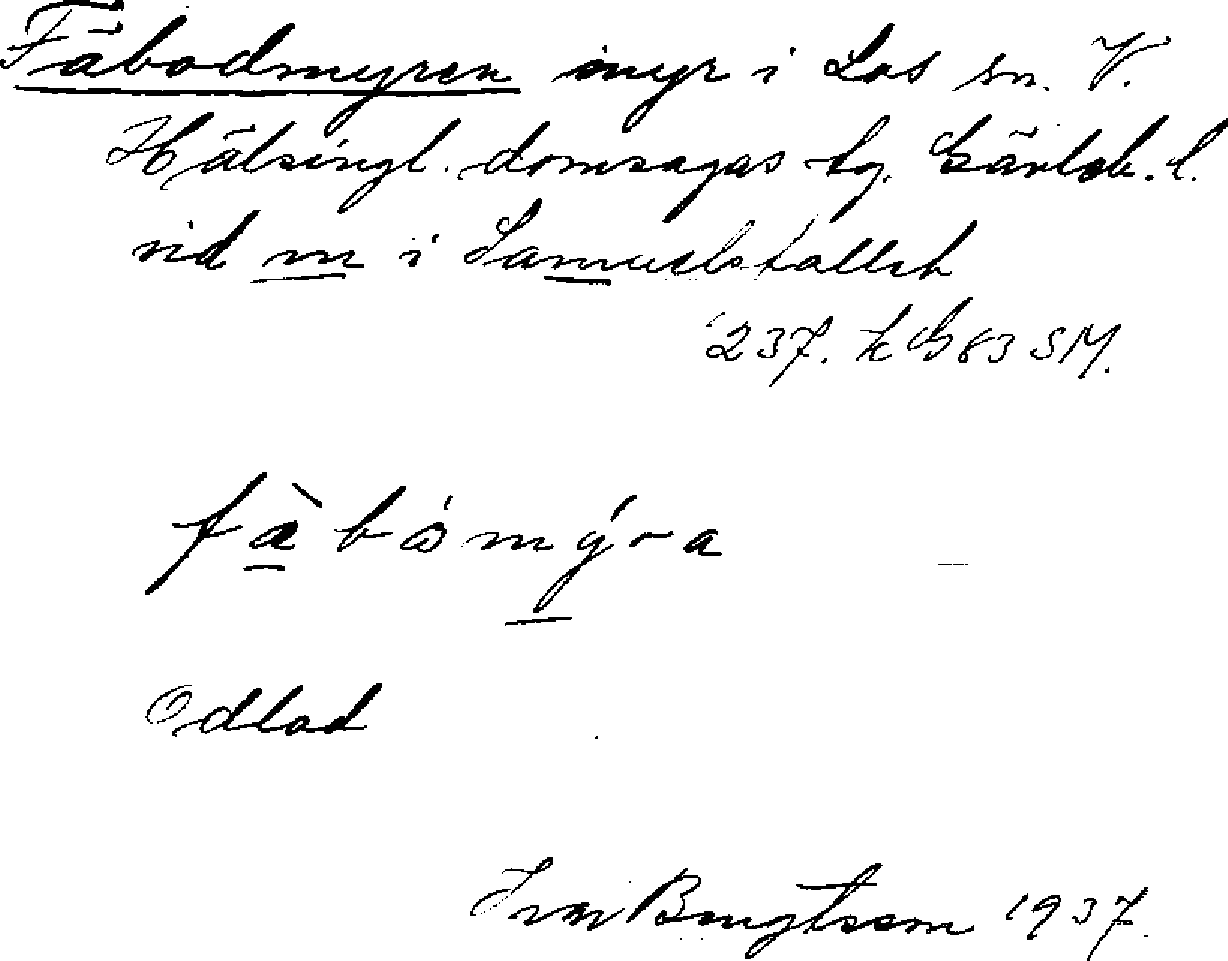 Fäbodmyren myr i Los sn. V.
Hälsingl. domsagas tg. Gävleb. l.
vid m i Samuelstallet
237. k G 83 SM.
fàbómýra
Odlad
Bengtsson 1937.